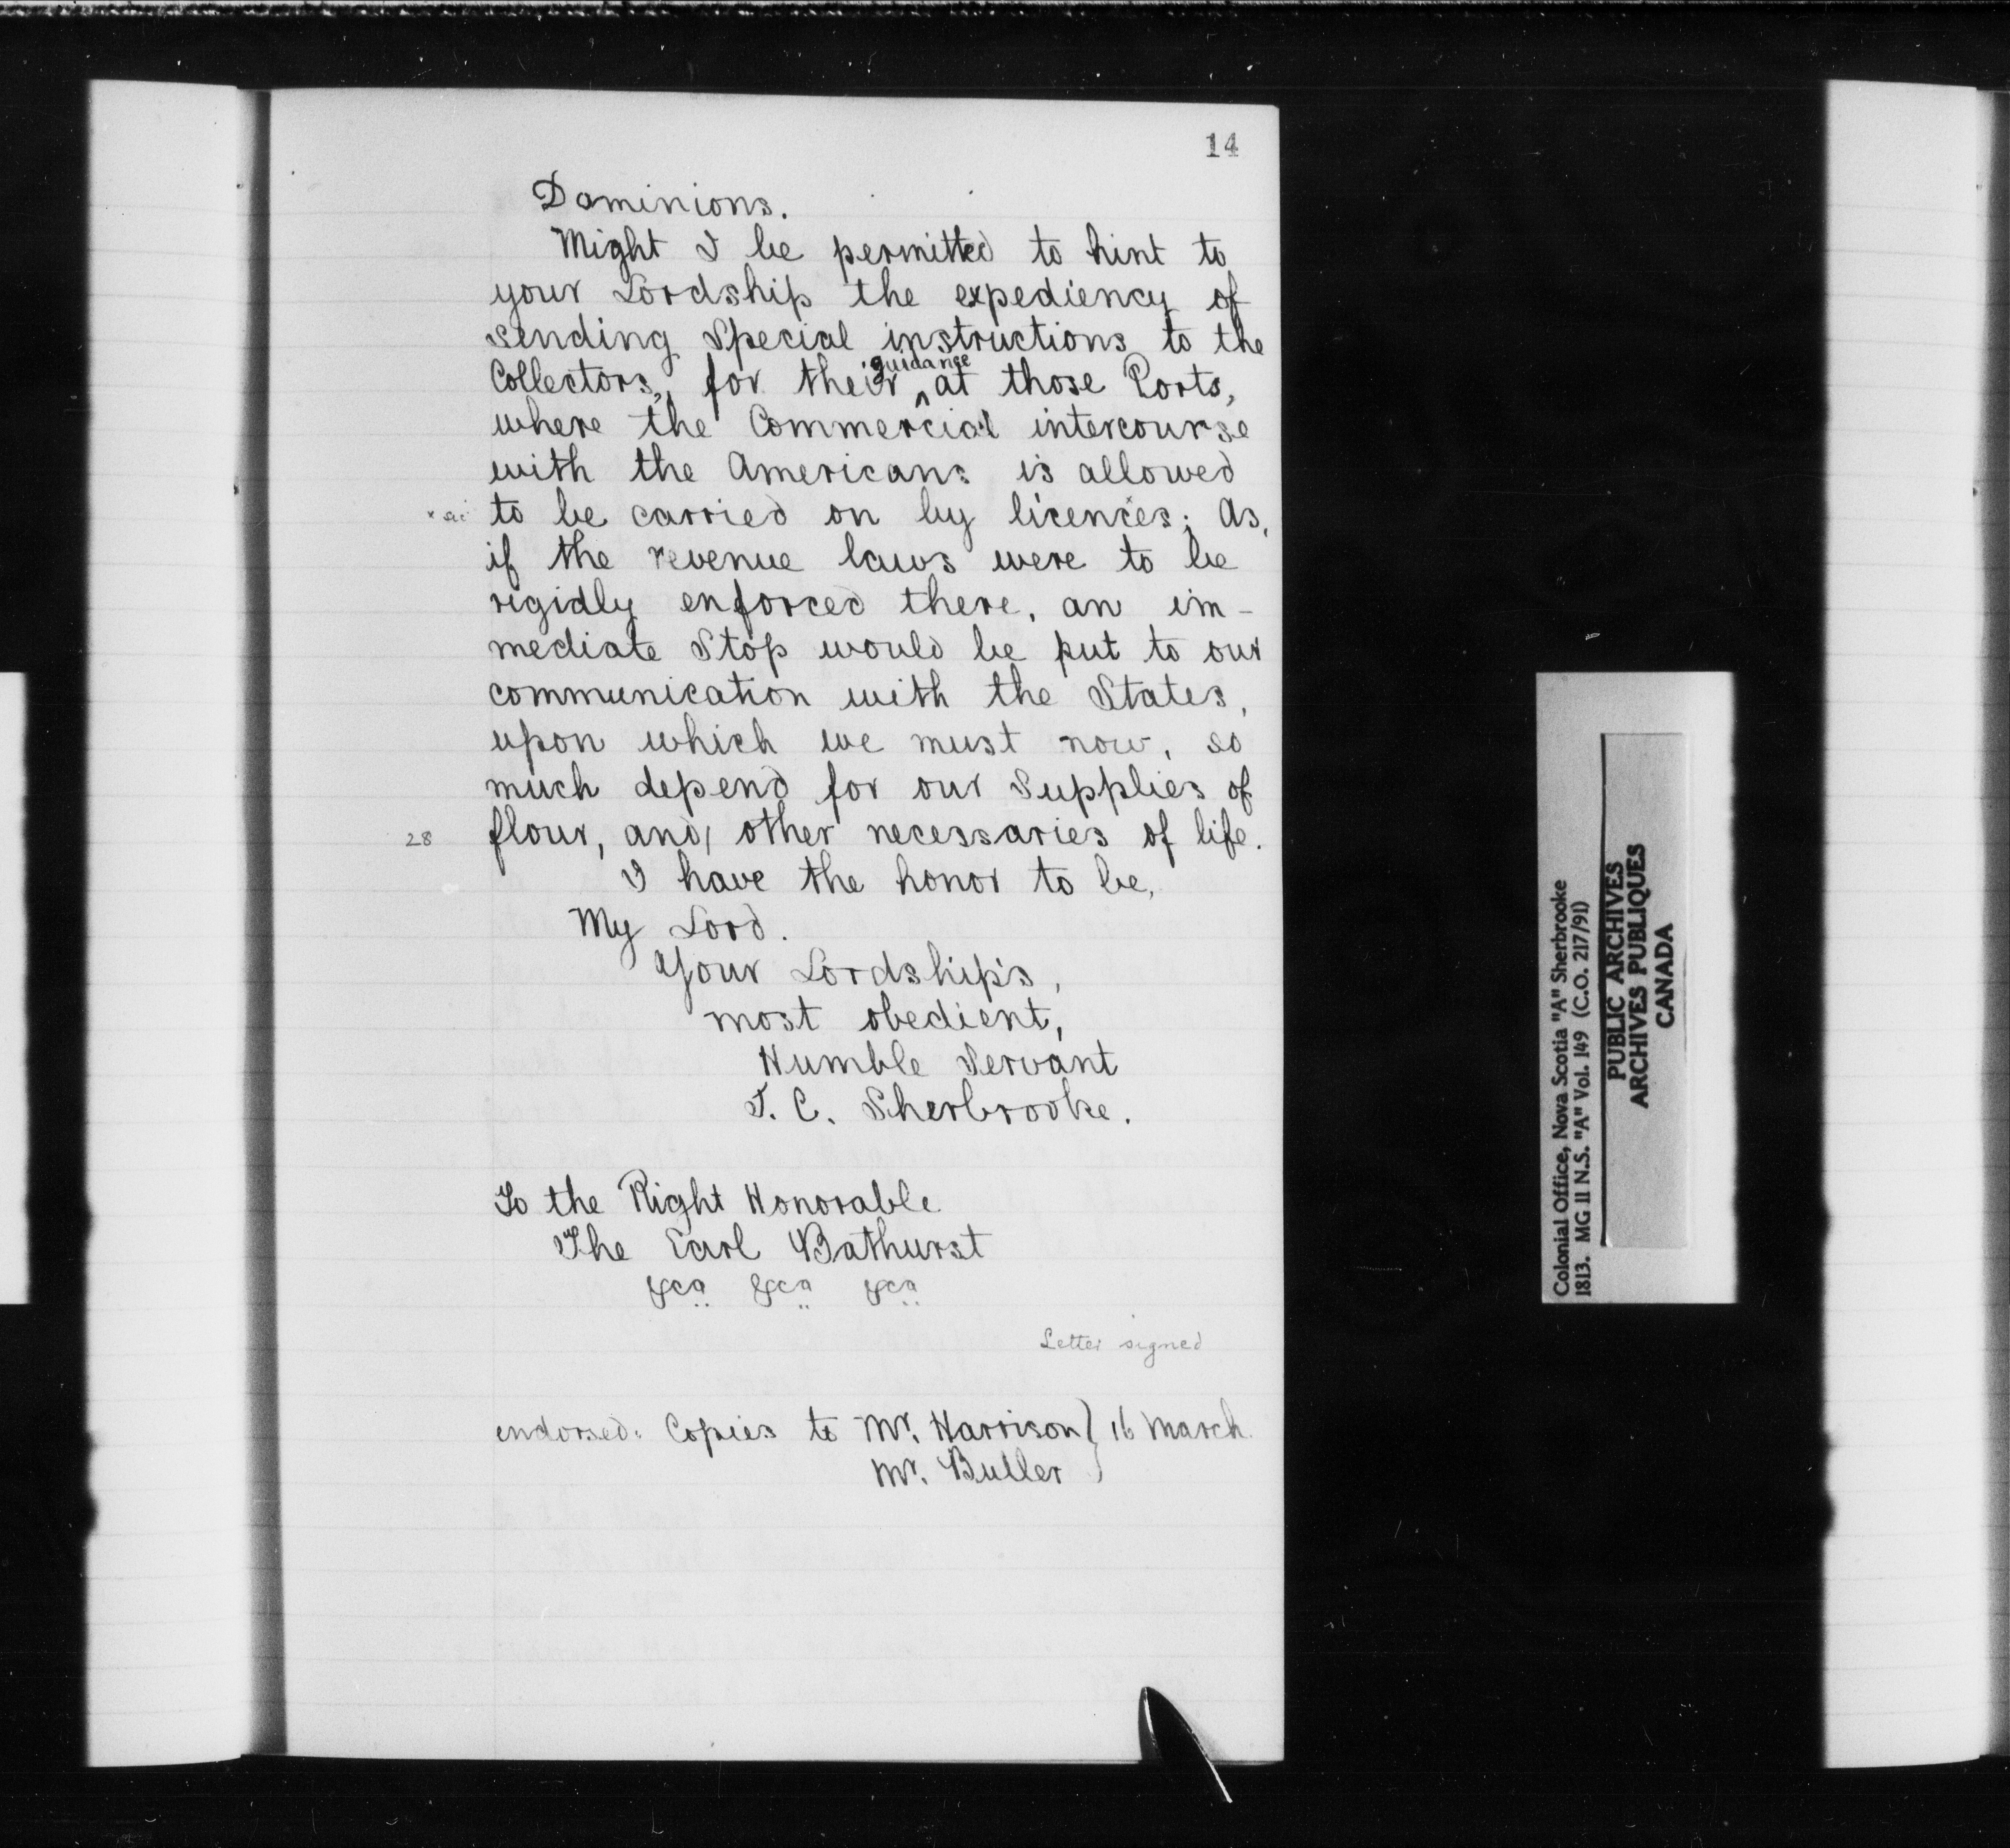 14
Dominions.
Might I be permitted to hint to
your Lordship the expediency of
sending Special instructions to the
Collectors, for their guidance at those Ports,
where the Commercial intercourse
with the Americans is allowed
to be carried on by licences; As,
if the revenue laws were to be
rigidly enforced there, an im-
mediate Stop would be put to our
communication with the States,
upon which we must now, so
much depend for our Supplies of
28 flour, and, other necessaries of life.
I have the honor to be,
My Lord.
Your Lordship's,
most obedient,
Humble Servant
J. C. Sherbrooke.
To the Right Honorable
The Earl Bathurst
&ca &ca &ca
Letter signed
endorsed: Copies to Mr. Harrison } 16 March.
Mr. Buller
Colonial Office, Nova Scotia "A" Sherbrooke
1813. MG 11 N.S. "A" Vol. 149 (C.O. 217/91)
PUBLIC ARCHIVES
ARCHIVES PUBLIQUES
CANADA